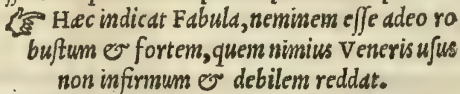 ☞ Hæc indicat Fabula, neminem eſſe adeo ro
buſtum & fortem, quem nimius Veneris uſus
non infirmum & debilem reddat.